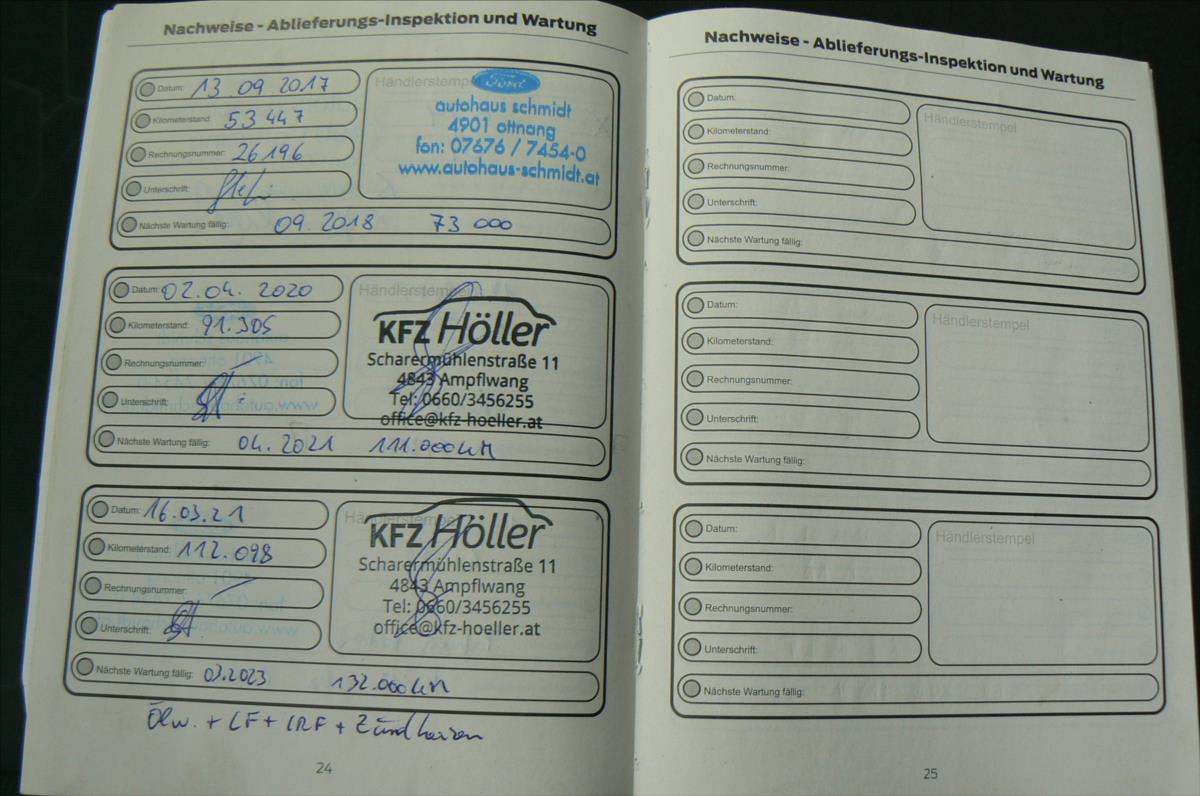 Nachweise - Ablieferungs-Inspektion und Wartung
Datum: 13 09.2017
Kilometerstand: 53 447
Rechnungsnummer: 26196
Unterschrift:
Händlerstempel
Ford
autohaus schmidt
4901 ottnang
fon: 07676 / 7454-0
www.autohaus-schmidt.at
Nächste Wartung fällig: 09.2018 73 000
Datum: 02.04. 2020
Kilometerstand: 91.305
Rechnungsnummer:
Unterschrift:
Händlerstempel
KFZ Höller
Scharermühlenstraße 11
4843 Ampflwang
Tel: 0660/3456255
office@kfz-hoeller.at
Nächste Wartung fällig: 04.2021 111.000 KM
Datum: 16.03.21
Kilometerstand: 112.098
Rechnungsnummer:
Unterschrift:
Händlerstempel
KFZ Höller
Scharermühlenstraße 11
4843 Ampflwang
Tel: 0660/3456255
office@kfz-hoeller.at
Nächste Wartung fällig: 03.2023 132.000 KM
Ölw. + LF + IRF + Zündkerzen
24
Nachweise - Ablieferungs-Inspektion und Wartung
Datum:
Kilometerstand:
Rechnungsnummer:
Unterschrift:
Händlerstempel
Nächste Wartung fällig:
Datum:
Kilometerstand:
Rechnungsnummer:
Unterschrift:
Händlerstempel
Nächste Wartung fällig:
Datum:
Kilometerstand:
Rechnungsnummer:
Unterschrift:
Händlerstempel
Nächste Wartung fällig:
25